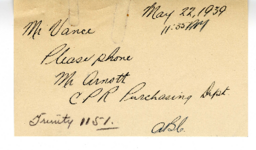 May 22, 1939
11:55 AM
Mr Vance
Please phone
Mr Arnott
CPR Purchasing Dept
Trinity 1151.